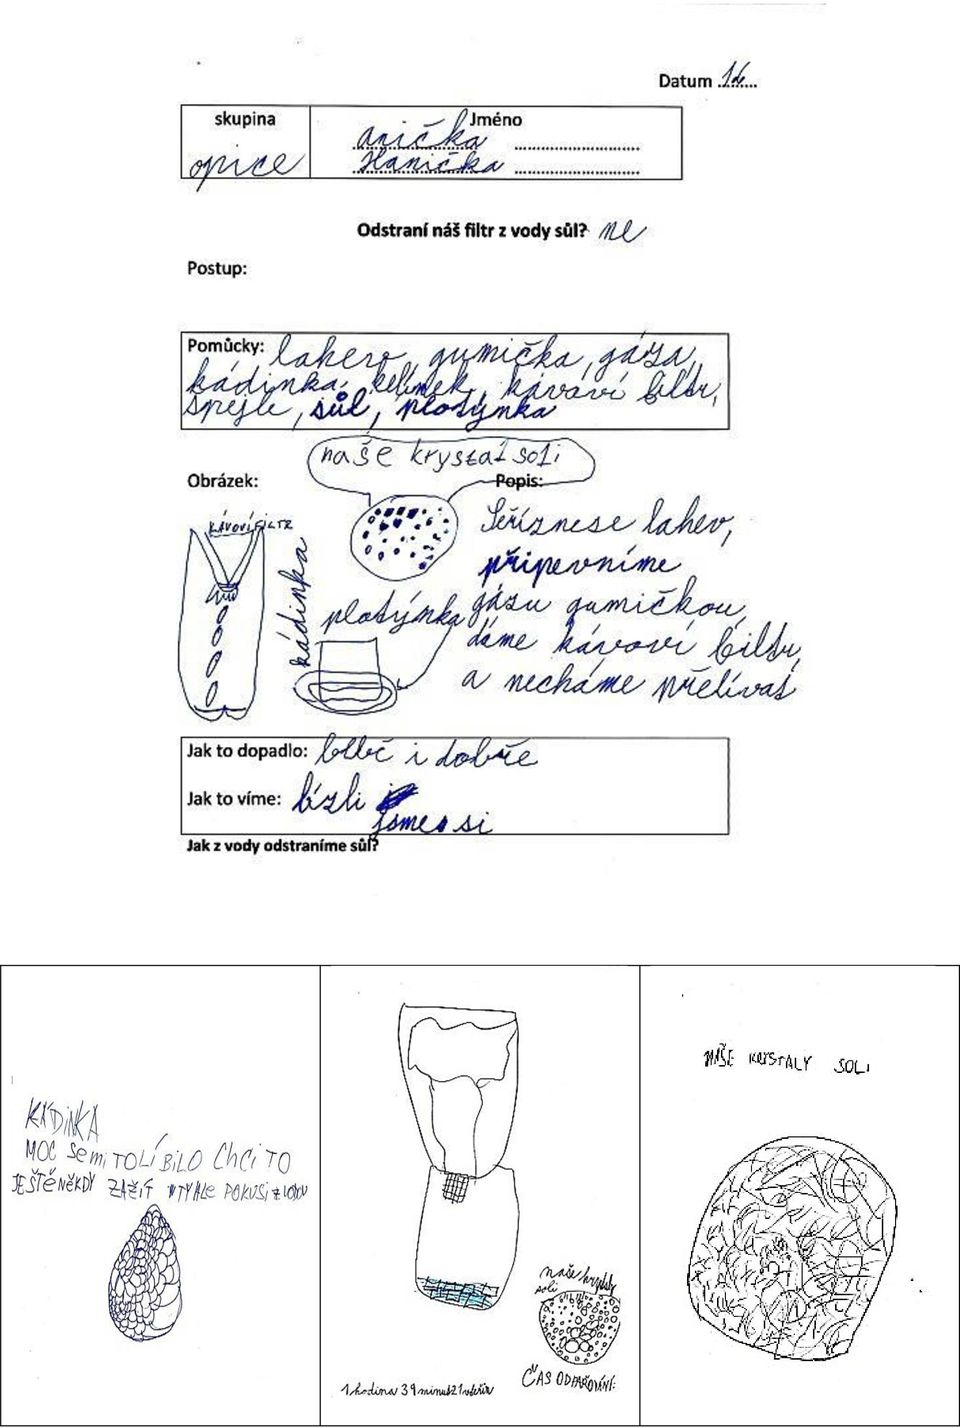 Datum 16
skupina
Jméno
opice
anička
Hanička
Odstraní náš filtr z vody sůl? ne
Postup:
Pomůcky: lahev, gumička, gáza,
kádinka, kelímek, kávoví filtr,
špejle, sůl, plotýnka
naše krystal soli
Obrázek:
Popis:
KÁVOVÍ FILTR
kádinka
plotýnka
Seříznese lahev,
připevníme
gázu gumičkou,
dáme kávoví filtr,
a necháme přelívat
Jak to dopadlo: blbě i dobře
Jak to víme: lízli
jsme si
Jak z vody odstraníme sůl?
KÁDiNKA
MOC SemiTOLÍBiLO CHCiTO
JEŠTĚNĚKDY ZAŽÍT POKUSi
naše krystaly
soli
ČAS ODPAŘOVÁNÍ:
1 hodina 39 minut 21 vteřin
NAŠE KRYSTALY SOLI